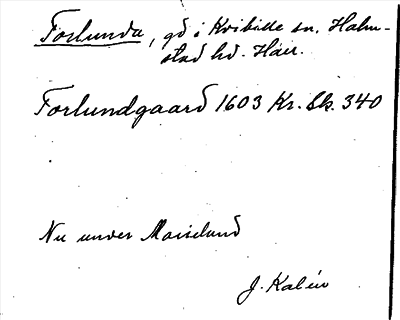 Forlunda, gd i Kvibille sn. Halm-
stad hd. Hall.
Forlundgaard 1603 Kr. Sk. 340
Nu under Maiselund
J. Kalén